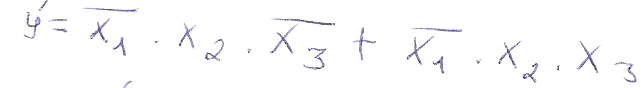 y = x̅₁ · x₂ · x̅₃ + x̅₁ · x₂ · x₃